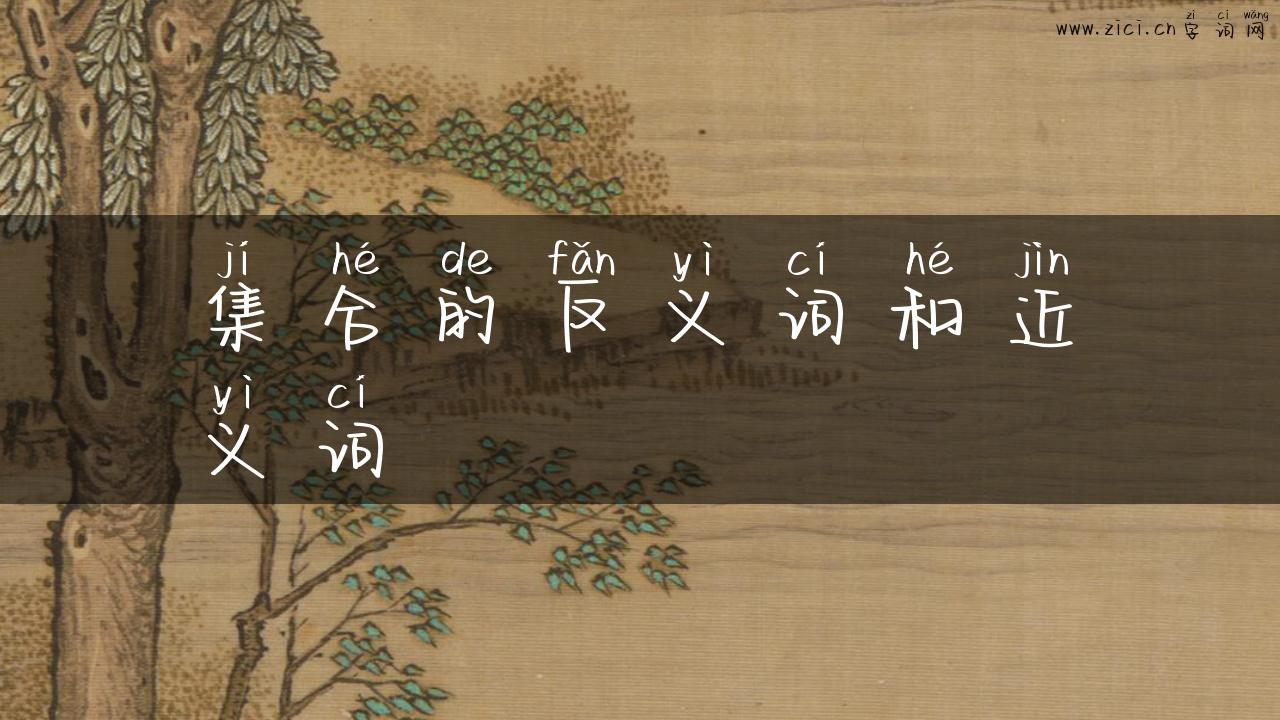 zì cí wǎng
www.zici.cn 字词网
jí hé de fǎn yì cí hé jìn
集合的反义词和近
yì cí
义词